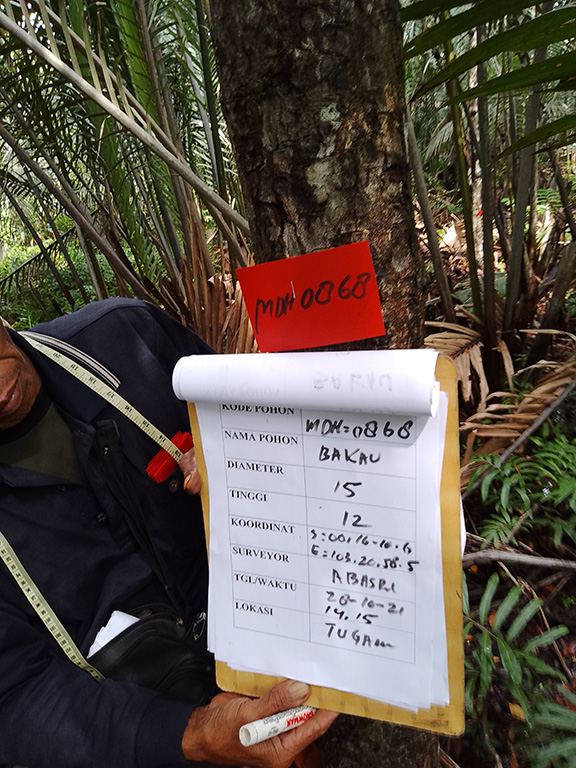 MDH 0868
BAKAU
KODE POHON MDH=0868
NAMA POHON BAKAU
DIAMETER 15
TINGGI 12
KOORDINAT S=00.16-10.6
E=103.20.58.5
SURVEYOR ABASRI
TGL/WAKTU 28-10-21
14.15
LOKASI TUGAM
SNOWMAN